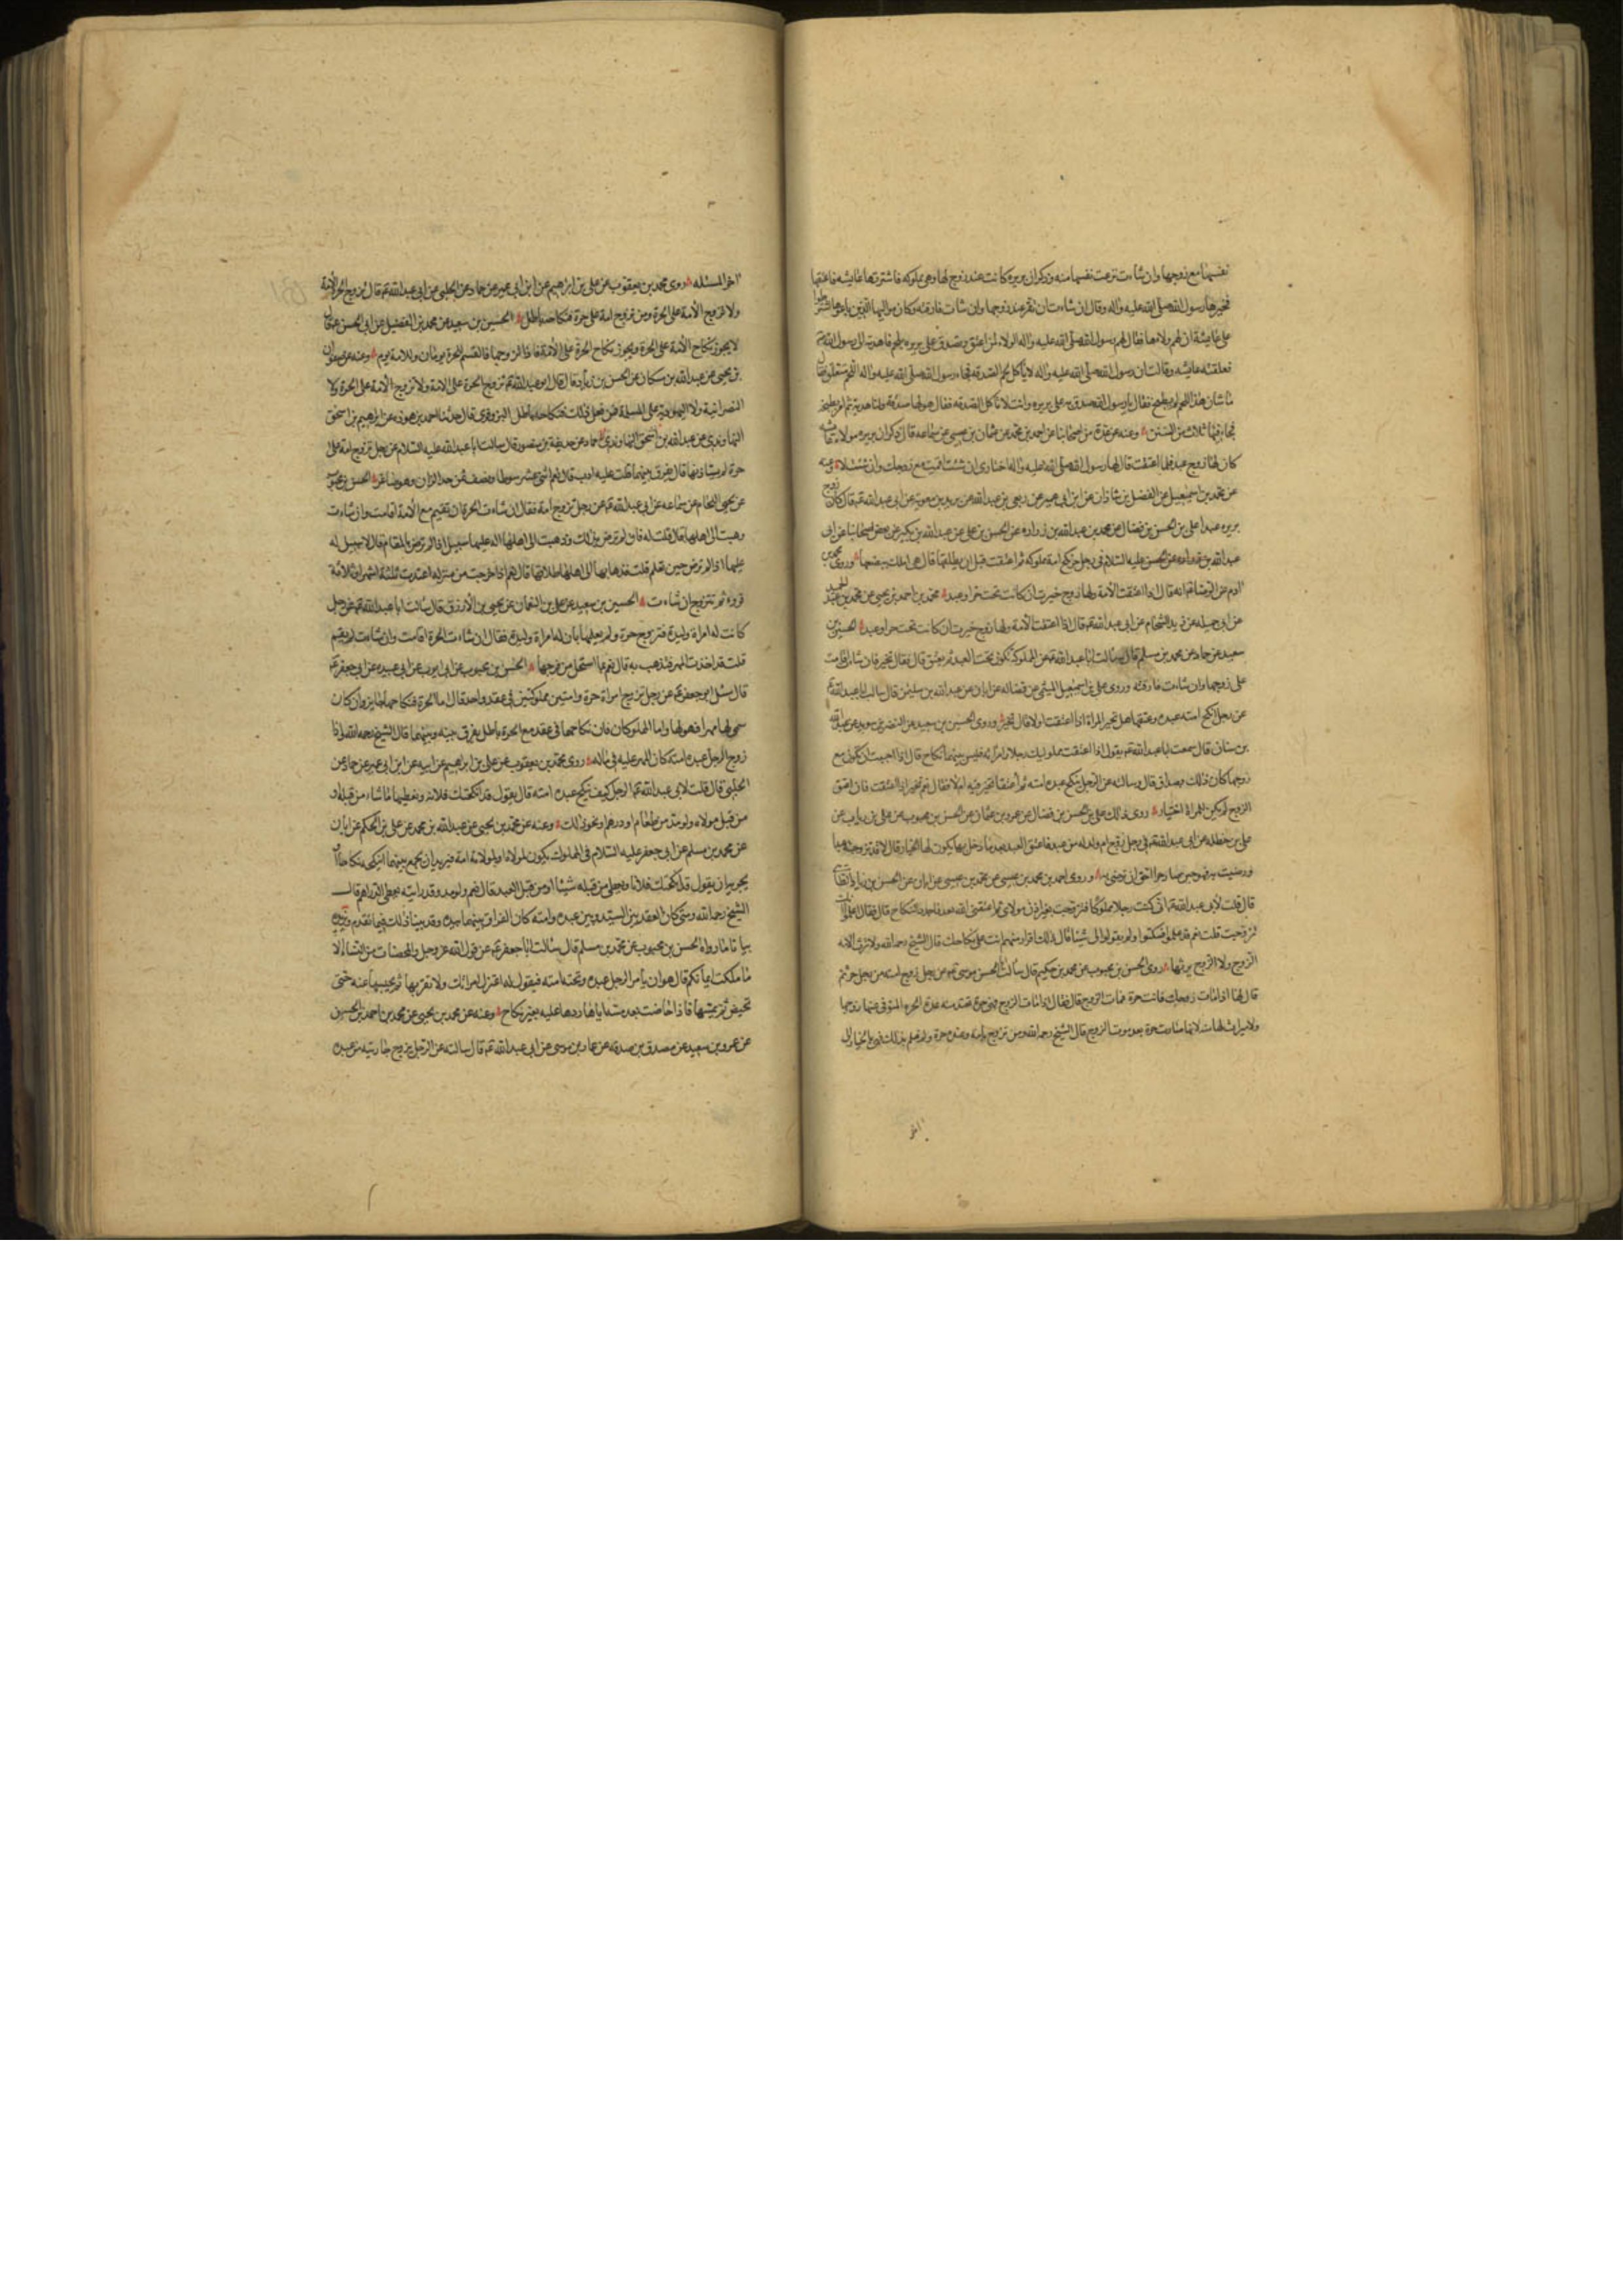 نفسها مع زوجها وان شاءت نزعت نفسها منه وذكر ان بريره كانت عند زوج لها وهي مملوكه فاشترتها عايشه فاعتقها
فخيرها رسول الله صلى الله عليه واله وقال ان شاءت ان تقر عند زوجها وان شاءت فارقته وكان مواليها الذين باعوها اشترطوا
على عايشة ان لهم ولاءها فقال لهم رسول الله صلى الله عليه واله الولاء لمن اعتق وتصدق على بريره بلحم فاهدته الى رسول الله
فعلقته عايشه وقالت ان رسول الله صلى الله عليه واله لا ياكل لحم الصدقه فجاء رسول الله صلى الله عليه واله واللحم معلق فقال
ما شان هذا اللحم لم يطبخ فقال يا رسول الله صدق به على بريره وانت لا تاكل الصدقه فقال هو لها صدقة ولنا هدية ثم امر بطبخه
فجاء فيها ثلاث من السنن وعنه عن عدة من اصحابنا عن احمد بن محمد عن عثمان بن عيسى عن سماعه قال ذكر ان بريره مولاة عايشه
كان لها زوج عبد فلما اعتقت قال لها رسول الله صلى الله عليه واله اختاري ان شئت اقمت مع زوجك وان شئت لا وعنه
عن محمد بن اسمعيل عن الفضل بن شاذان عن ابن ابي عمير عن ربعي بن عبد الله عن بريد بن معويه عن ابي عبد الله قال كان زوج
بريره عبدا علي بن الحسن بن فضال عن محمد بن عبد الله بن زراره عن الحسن بن علي عن عبد الله بن بكير عن بعض اصحابنا عن ابي
عبد الله عليه السلام في رجل حر نكح امة مملوكه ثم اعتقت قبل ان يطلقها قال هي املك ببضعها وروى محمد بن
ادم عن الرضا انه قال اذا اعتقت الامة ولها زوج خيرت ان كانت تحت حر او عبد محمد بن احمد بن يحيى عن محمد بن عبد الحميد
عن ابي جميله عن زيد الشحام عن ابي عبد الله قال اذا اعتقت الامة ولها زوج خيرت ان كانت تحت حر او عبد الحسين بن
سعيد عن حماد عن محمد بن مسلم قال سالت ابا عبد الله عن المملوكة تكون تحت العبد ثم تعتق قال فقال تخير فان شاءت اقامت
على زوجها وان شاءت فارقته وروى علي بن اسمعيل الميثمي عن فضاله عن ابان عن عبد الله بن سليمن قال سالت ابا عبد الله
عن رجل انكح امته عبده وعتقها هل تخير المراة اذا اعتقت او لا قال تخير وروى الحسين بن سعيد عن النضر بن سويد عن عبد الله
بن سنان قال سمعت ابا عبد الله يقول اذا اعتقت مملوكيك رجلا وامراته فليس بينهما نكاح قال اذا احببت ان تكون مع
زوجها كان ذلك بصداق قال وسالته عن الرجل ينكح عبده امته ثم اعتقها تخير فيه ام لا فقال نعم تخير اذا اعتقت فان اعتق
الزوج لم يكن للمراة اختيار روى ذلك علي بن الحسن بن فضال عن عمرو بن عثمان عن الحسن بن محبوب عن علي بن رياب عن
علي بن حنظله عن ابي عبد الله في رجل زوج ام ولد له من عبد فاعتق العبد بعد ما دخل بها يكون لها الخيار قال لا قد تزوجته عبدا
ورضيت به فهو حين صار حرا احق ان ترضى به وروى احمد بن محمد بن عيسى عن محمد بن عيسى عن ابان عن الحسن بن زياد الطائي
قال قلت لابي عبد الله اني كنت رجلا مملوكا فتزوجت بغير اذن مولاي ثم اعتقني الله بعد فاجدد النكاح قال فقال علموا انك
تزوجت قلت نعم قد علموا فسكتوا ولم يقولوا لي شيئا قال ذلك اقرار منهم انت على نكاحك قال الشيخ رحمه الله ولا ترث الامة
الزوج ولا الزوج يرثها روى الحسن بن محبوب عن محمد بن حكيم قال سالت ابا الحسن موسى عن رجل زوج امته من رجل حر ثم
قال لها اذا مات زوجك فانت حرة فمات الزوج قال فقال اذا مات الزوج فهي حرة تعتد منه عدة الحرة المتوفى عنها زوجها
ولا ميراث لها منه لانها صارت حرة بعد موت الزوج قال الشيخ رحمه الله ومن تزوج بامة وعنده حرة ولم تعلم بذلك فهي بالخيار الى
اخر
اخر المسئله روى محمد بن يعقوب عن علي بن ابرهيم عن ابيه عن ابن ابي عمير عن حماد عن الحلبي عن ابي عبد الله قال تزوج الحرة على الامة
ولا تزوج الامة على الحرة ومن تزوج امة على حرة فنكاحه باطل الحسين بن سعيد عن محمد بن الفضيل عن ابي الحسن قال
لا يجوز نكاح الامة على الحرة ويجوز نكاح الحرة على الامة فاذا تزوجها فالقسم للحرة يومان وللامة يوم وعنه عن صفوان
بن يحيى عن عبد الله بن مسكان عن الحسن بن زياد قال قال ابو عبد الله تزوج الحرة على الامة ولا تزوج الامة على الحرة ولا
النصرانية ولا اليهودية على المسلمة فمن فعل ذلك فنكاحه باطل البزوفري قال حدثنا احمد بن هوذه عن ابرهيم بن اسحق
النهاوندي عن عبد الله بن حماد عن حذيفة بن منصور قال سالت ابا عبد الله عليه السلام عن رجل تزوج امة على
حرة لم يستاذنها قال يفرق بينهما قلت عليه ادب قال نعم اثنى عشر سوطا ونصف ثمن حد الزاني وهو صاغر الحسن بن محبوب
عن يحيى اللحام عن سماعه عن ابي عبد الله عن رجل تزوج امة فقال ان شاءت الحرة ان تقيم مع الامة اقامت وان شاءت
ذهبت الى اهلها قال قلت له فان لم ترض بذلك وذهبت الى اهلها اله عليها سبيل اذا لم ترض بالمقام قال لا سبيل له
عليها اذا لم ترض حين تعلم قلت فذهابها الى اهلها طلاقها قال نعم اذا خرجت من منزله اعتدت ثلثة اشهر او ثلاثة
قروء ثم تتزوج ان شاءت الحسين بن سعيد عن علي بن النعمان عن يحيى بن الازرق قال سالت ابا عبد الله عن رجل
كانت له امراة وليدة فتزوج حرة ولم يعلمها بان له امراة وليدة فقال ان شاءت الحرة اقامت وان شاءت لم تقم
قلت قد اخذت المهر فتذهب به قال نعم بما استحل من فرجها الحسن بن محبوب عن ابي ايوب عن ابي عبيده عن ابي جعفر
قال سئل ابو جعفر عن رجل تزوج امراة حرة وامتين مملوكتين في عقد واحد قال اما الحرة فنكاحها جايز وان كان
سمى لها مهرا فهو لها واما المملوكتان فان نكاحهما في عقد مع الحرة باطل يفرق بينه وبينهما قال الشيخ رحمه الله واذا
زوج الرجل عبده امته كان المهر عليه في ماله روى محمد بن يعقوب عن علي بن ابرهيم عن ابيه عن ابن ابي عمير عن حماد عن
الحلبي قال قلت لابي عبد الله الرجل كيف ينكح عبده امته قال يقول قد انكحتك فلانه ويعطيها ما شاء من قبله او
من قبل مولاه ولو مد من طعام او درهم او نحو ذلك وعنه عن محمد بن يحيى عن عبد الله بن محمد عن علي بن الحكم عن ابان
عن محمد بن مسلم عن ابي جعفر عليه السلام في المملوك يكون لمولاه او لمولاته امة فيريد ان يجمع بينهما اينكحه نكاحا او
يجزيه ان يقول قد انكحتك فلانا ويعطي من قبله شيئا او من قبل العبد قال نعم ولو مد وقد رايته يعطي الدراهم قال
الشيخ رحمه الله ومتى كان العقد بين السيد وبين عبده وامته كان الفراق بينهما بيده وقد بينا ذلك فيما تقدم ويزيده
بيانا ما رواه الحسن بن محبوب عن محمد بن مسلم قال سالت ابا جعفر عن قول الله عز وجل والمحصنات من النساء الا
ما ملكت ايمانكم قال هو ان يامر الرجل عبده وتحته امته فيقول له اعتزل امراتك ولا تقربها ثم يحبسها عنه حتى
تحيض ثم يمسها فاذا حاضت بعد مسه اياها ردها عليه بغير نكاح وعنه عن محمد بن يحيى عن محمد بن احمد بن الحسن
عن عمرو بن سعيد عن مصدق بن صدقه عن عمار بن موسى عن ابي عبد الله قال سالته عن الرجل يزوج جاريته من عبده